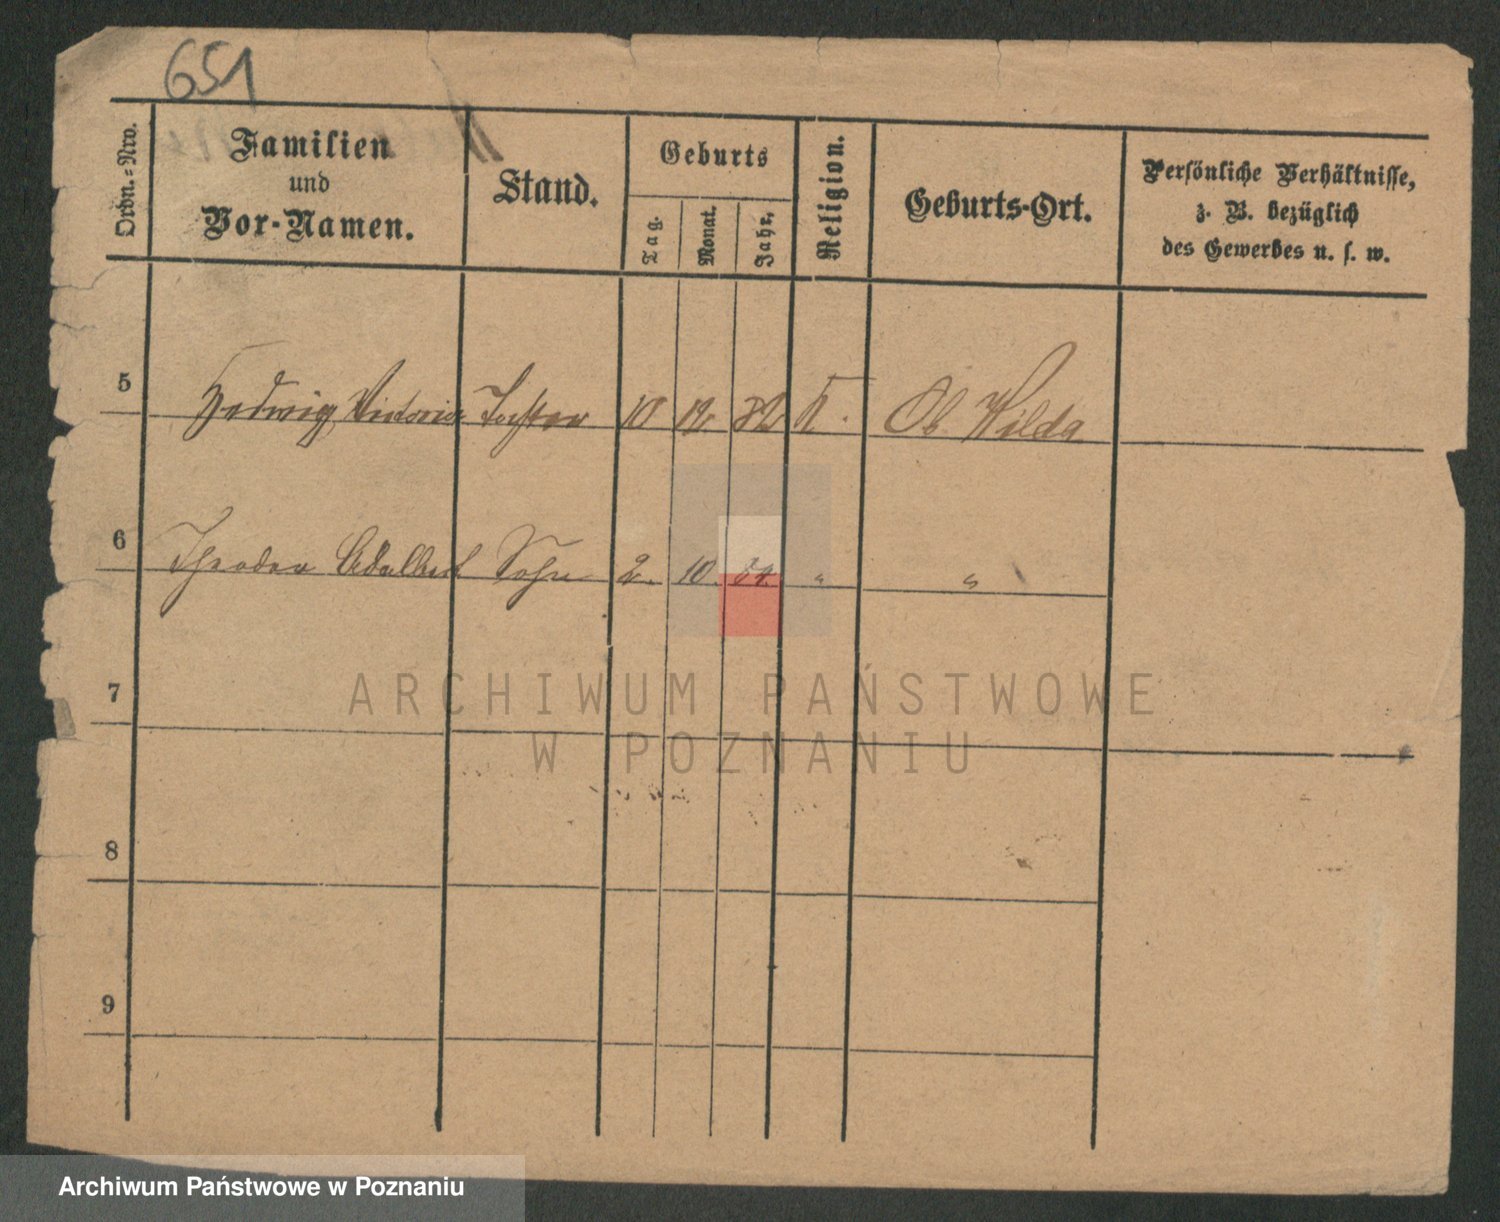 651
Ordn.-Nro.
Familien
und
Vor-Namen.
Stand.
Geburts
Tag.
Monat.
Jahr,
Religion.
Geburts-Ort.
Persönliche Verhältnisse,
z. B. bezüglich
des Gewerbes u. s. w.
5 Hedwig Victoria Tochter 10 12. K. Ob. Wilda
6 Theodor Adalbert Sohn 2. 10. " "
7
ARCHIWUM PAŃSTWOWE
W POZNANIU
8
9
Archiwum Państwowe w Poznaniu